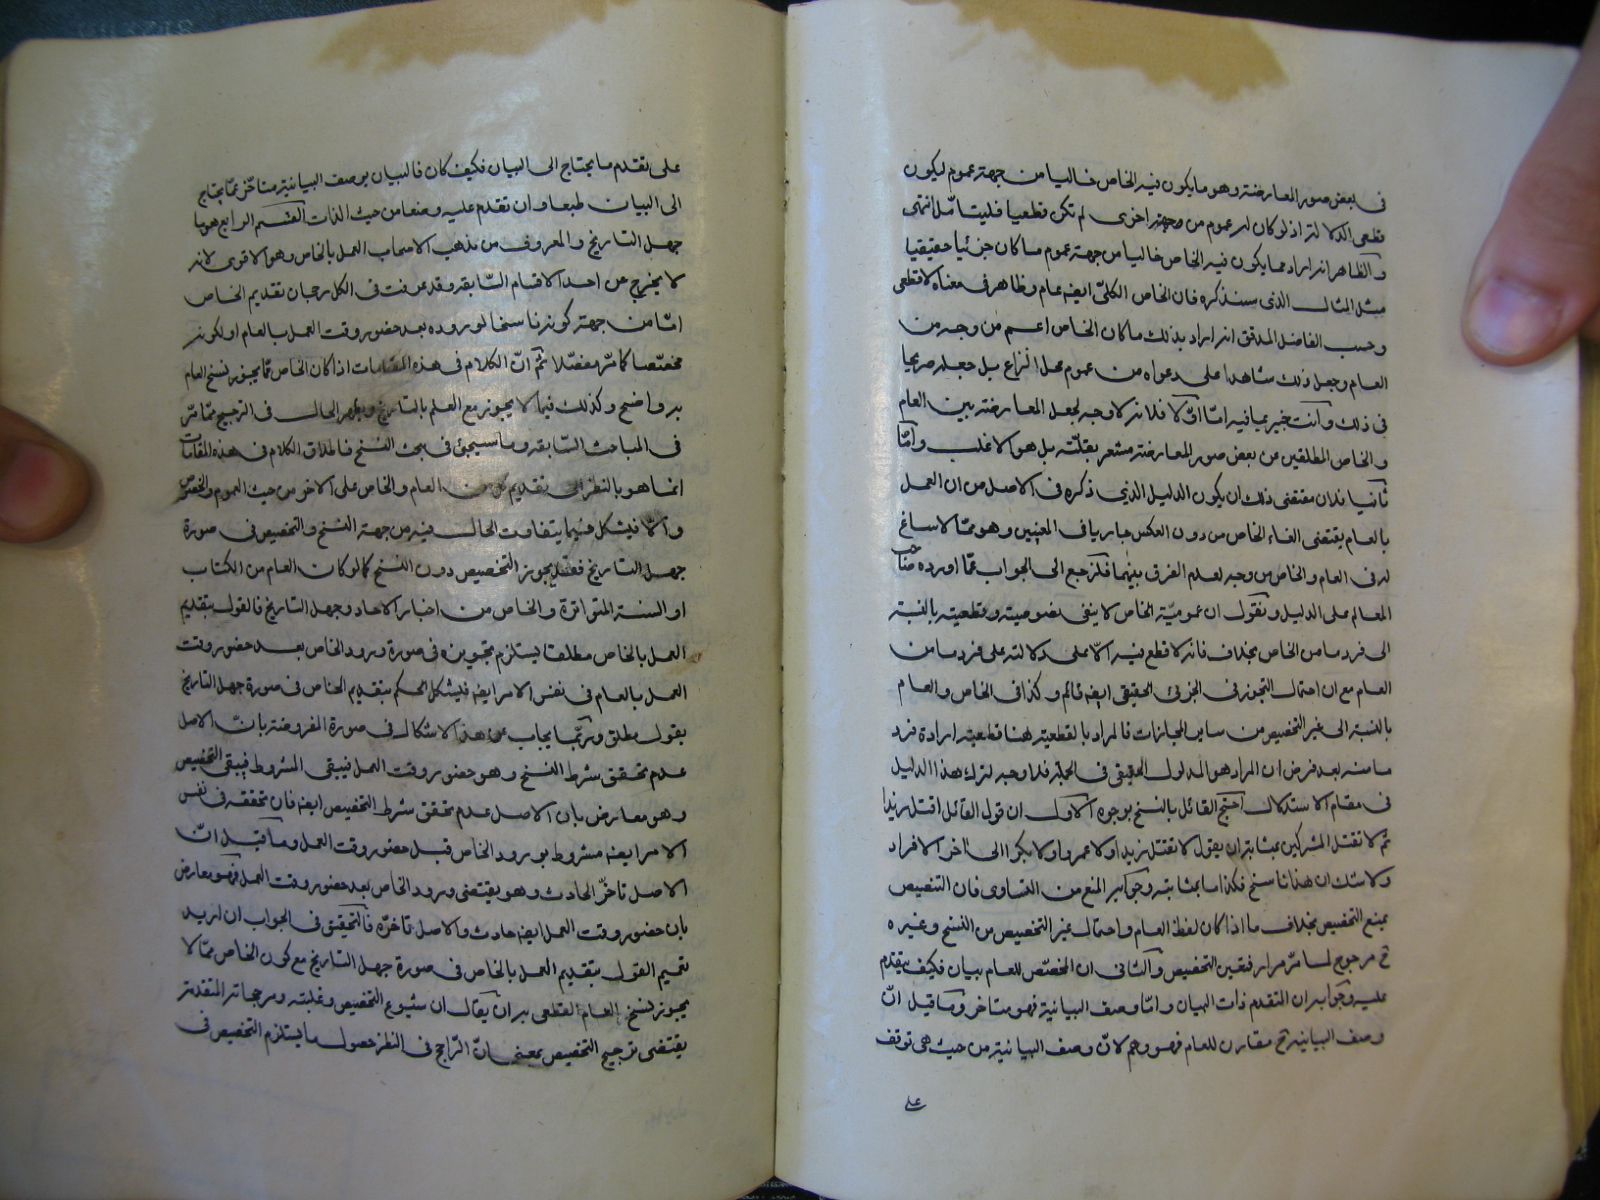 فى بعض صور المعارضة وهو ما يكون فيه الخاص خاليا من جهة عموم ليكون
قطعى الدلالة اذ لو كان له عموم من وجهة اخرى لم تكن قطعيا فليتامّل انتهى
والظاهر انه اراد مما يكون فيه الخاص خاليا من جهة عموم ما كان جزئيا حقيقيا
مثل المثال الذى سنذكره فان الخاص الكلىّ ايضه عام وظاهر فى معناه لا قطعى
وحسب الفاضل المدقق انه اراد بذلك ما كان الخاص اعم من وجه من
العام وجعل ذلك شاهدا على دعواه من عموم محل النزاع بل جعله صريحا
فى ذلك وانت خبير بما فيه امّا اوّلا فلانه لا وجه لجعل المعارضة بين العام
والخاص المطلقين من بعض صور المعارضة مشعر بقلّته بل هو الاغلب وامّا
ثانيا فلان مقتضى ذلك ان يكون الدليل الذى ذكره فى الاصل من ان العمل
بالعام يقتضى الغاء الخاص من دون العكس جاريا فى المعنيين وهو ممّا لا مساغ
له فى العام والخاص من وجه لعدم الفرق بينهما فلنرجع الى الجواب عمّا اورده صاحب
المعالم على الدليل ونقول ان عموميّة الخاص لا ينفى نصوصيته وقطعيته بالنسبة
الى فرد ما من الخاص بخلاف فانه لا قطع فيه الّا على دلالته على فرد ما من
العام مع ان احتمال التجوز فى الجزئى الحقيقى ايضه قائم وكذا فى الخاص والعام
بالنسبة الى غير التخصيص من ساير المجازات فالمراد بالقطعية هنا قطعية ارادة فرد
ما منه بعد فرض ان المراد هو المدلول الحقيقى فى الجملة فلا وجه لترك هذا الدليل
فى مقام الاستدلال احتج القائل بالنسخ بوجوه الاول ان قول القائل اقتل زيدا
ثم لا تقتل المشركين بمثابة ان يقول لا تقتل زيدا ولا عمروا ولا بكرا الى اخر الافراد
ولا شك ان هذا ناسخ فكذا ما بمثابته وجوابه المنع من التساوى فان التنصيص
يمنع التخصيص بخلاف ما اذا كان بلفظ العام واحتمال غير التخصيص من النسخ وغيره
ح مرجوح لما مرّ مرارا فيقين التخصيص والثانى ان المخصّص للعام بيان فكيف يتقدم
عليه وجوابه ان المتقدم ذات البيان وامّا وصف البيانية فهو متاخر وما قيل انّ
وصف البيانية ح مقارن للعام فهو وهم لانّ وصف البيانية من حيث هى توقف
على
على تقدم ما يحتاج الى البيان فكيف كان فالبيان بوصف البيانية متاخّر عمّا يحتاج
الى البيان طبعا وان تقدم عليه وضعا من حيث الذات القسم الرابع هو ما
جهل التاريخ والمعروف من مذهب الاصحاب العمل بالخاص وهو الاقوى لانه
لا يخرج عن احد الاقسام السّابقة وقد عرفت فى الكل رجحان تقديم الخاص
امّا من جهة كونه ناسخا لوروده بعد حضور وقت العمل بالعام او لكونه
مخصّصا كما مرّ مفصّلا ثمّ انّ الكلام فى هذه المقامات اذا كان الخاص ممّا يجوز نسخ العام
به واضح وكذلك فيما لا يجوز مع العلم بالتاريخ ويظهر الحال فى الترجيح ممّا مرّ
فى المباحث السّابقة وما سيجئ فى بحث النسخ فاطلاق الكلام فى هذه المقامات
انما هو بالنظر الى تقديم كل من العام والخاص على الاخر من حيث العموم والخصوص
والّا فيشكل فيما يتفاوت الحال فيه من جهة النسخ والتخصيص فى صورة
جهل التاريخ فقد يجوز التخصيص دون النسخ كما لو كان العام من الكتاب
او السنة المتواترة والخاص من اخبار الاحاد وجهل التاريخ فالقول بتقديم
العمل بالخاص مطلقا يستلزم تجويزه فى صورة ورود الخاص بعد حضور وقت
العمل بالعام فى نفس الامر ايضه فليشكل الحكم بتقديم الخاص فى صورة جهل التاريخ
بقول مطلق وربّما يجاب عن هذا الاشكال فى صورة المفروضة بانّ الاصل
عدم تحقق شرط النسخ وهو حضور وقت العمل فيبقى المشروط فيبقى التخصيص
وهو معارض بان الاصل عدم تحقق شرط التخصيص ايضه فان تحققه فى نفس
الامر ايضه مشروط بورود الخاص قبل حضور وقت العمل وما قيل انّ
الاصل تاخّر الحادث وهو يقتضى ورود الخاص بعد حضور وقت العمل فهو معارض
بان حضور وقت العمل ايضه حادث والاصل تاخّره فالتحقيق فى الجواب ان اريد
تتميم القول بتقديم العمل بالخاص فى صورة جهل التاريخ مع كون الخاص ممّا لا
يجوز نسخ العام القطعى به ان يقال ان شيوع التخصيص وغلبته ومرجحاته المتقدمة
يقتضى ترجيح التخصيص بمعنى انّ الرّاجح فى النظر حصول ما يستلزم التخصيص فى